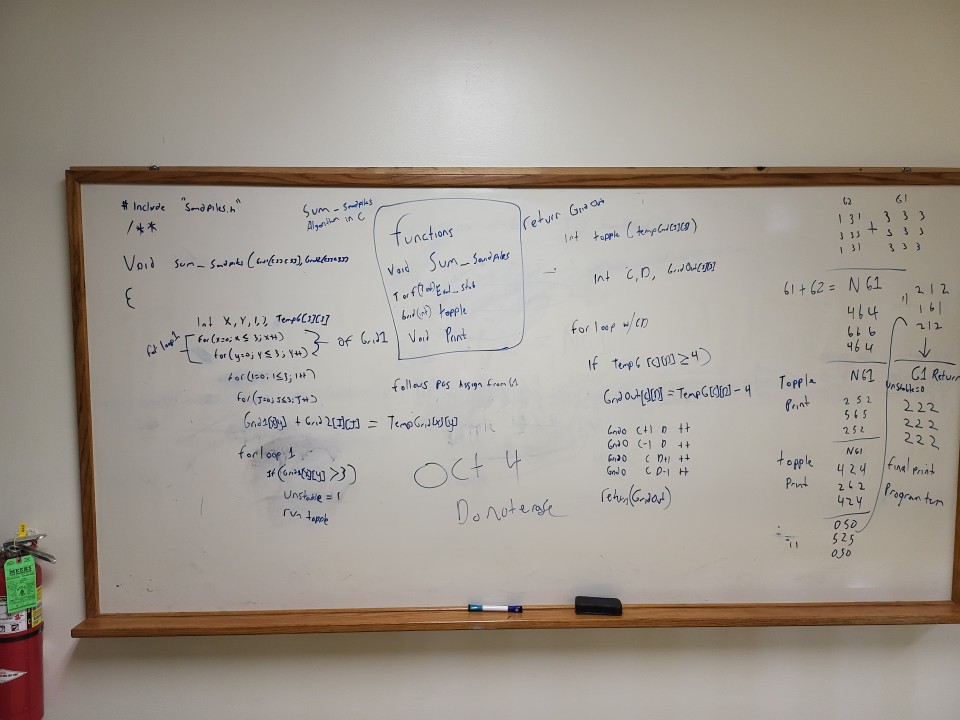 # Include "Sandpiles.h"
/**
Void Sum_Sandpiles (Grid1[3][3], Grid2[3][3])
{
Int X, Y, I, J, TempG[3][3]
for loop 1
for(x=0; x ≤ 3; x++)
for(y=0; y ≤ 3; y++)
of Grid1
for(I=0; I≤3; I++)
for(J=0; J≤3; J++)
Grid1[x][y] + Grid2[I][J] = TempGrid[x][y]
for loop 1
If(Grid1[x][y] >3)
Unstable = 1
run topple
Sum_Sandpiles
Algorithm in C
functions
Void Sum_Sandpiles
Grid(int) topple
Void Print
follows pos assign from G1
Oct 4
Do not erase
return GridOut
Int topple (tempGrid[3][3])
Int C, D, GridOut[3][3]
for loop w/CD
If TempG[C][D] ≥ 4)
GridOut[C][D] = TempG[C][D] - 4
Grido C+1 D ++
Grido C-1 D ++
Grido C D+1 ++
Grido C D-1 ++
return(GridOut)
G2 G1
1 3 1 + 3 3 3
3 3 3 3 3 3
1 3 1 3 3 3
G1 + G2 = NG1
4 6 4
6 6 6
4 6 4
Topple NG1
Print 2 5 2
5 6 5
2 5 2
topple NG1
Print 4 2 4
2 6 2
4 2 4
0 5 0
5 2 5
0 5 0
2 1 2
1 6 1
2 1 2
G1 Return
unstable=0
2 2 2
2 2 2
2 2 2
final print
Program term